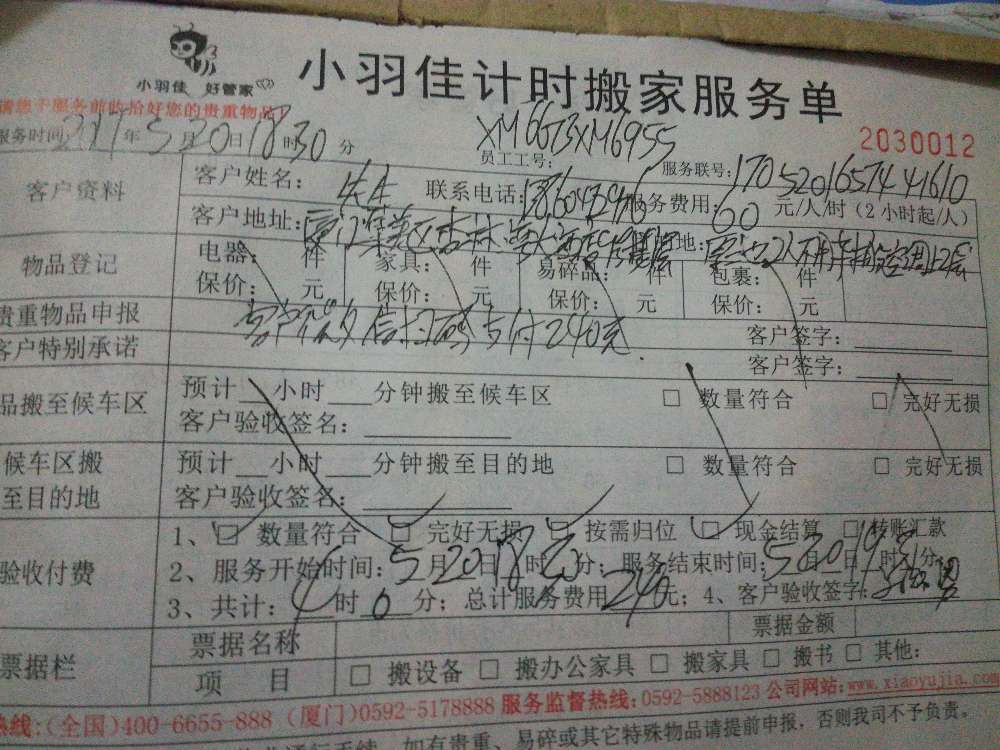 小羽佳 好管家
小羽佳计时搬家服务单
请您于服务前收拾好您的贵重物品
2030012
服务时间: 2017年5月20日18时30分
员工工号: XM0673XM6955
服务联号: 17052016574441610
客户资料
客户姓名: 先生 联系电话: 服务费用: 60 元/人/时(2小时起/人)
客户地址: 厦门集美区杏林
物品登记
电器: 件 家具: 件 易碎品: 件 包裹: 件
保价: 元 保价: 元 保价: 元 保价: 元
贵重物品申报 客户签字:
客户微信扫码支付240元.
客户特别承诺 客户签字:
品搬至候车区
预计 小时 分钟搬至候车区 □ 数量符合 □ 完好无损
客户验收签名:
候车区搬至目的地
预计 小时 分钟搬至目的地 □ 数量符合 □ 完好无损
客户验收签名:
验收付费
1、□ 数量符合 □ 完好无损 □ 按需归位 □ 现金结算 □ 转账汇款
2、服务开始时间: 5月20日18时30分; 服务结束时间: 5月20日19时 分;
3、共计: 4时0分; 总计服务费用240元; 4、客户验收签字:
票据栏
票据名称 票据金额
项目 □ 搬设备 □ 搬办公家具 □ 搬家具 □ 搬书 □ 其他:
热线:(全国)400-6655-888 (厦门)0592-5178888 服务监督热线:0592-5888123 公司网站:www.xiaoyujia.com
如有贵重、易碎或其它特殊物品请提前申报,否则我司不予负责。